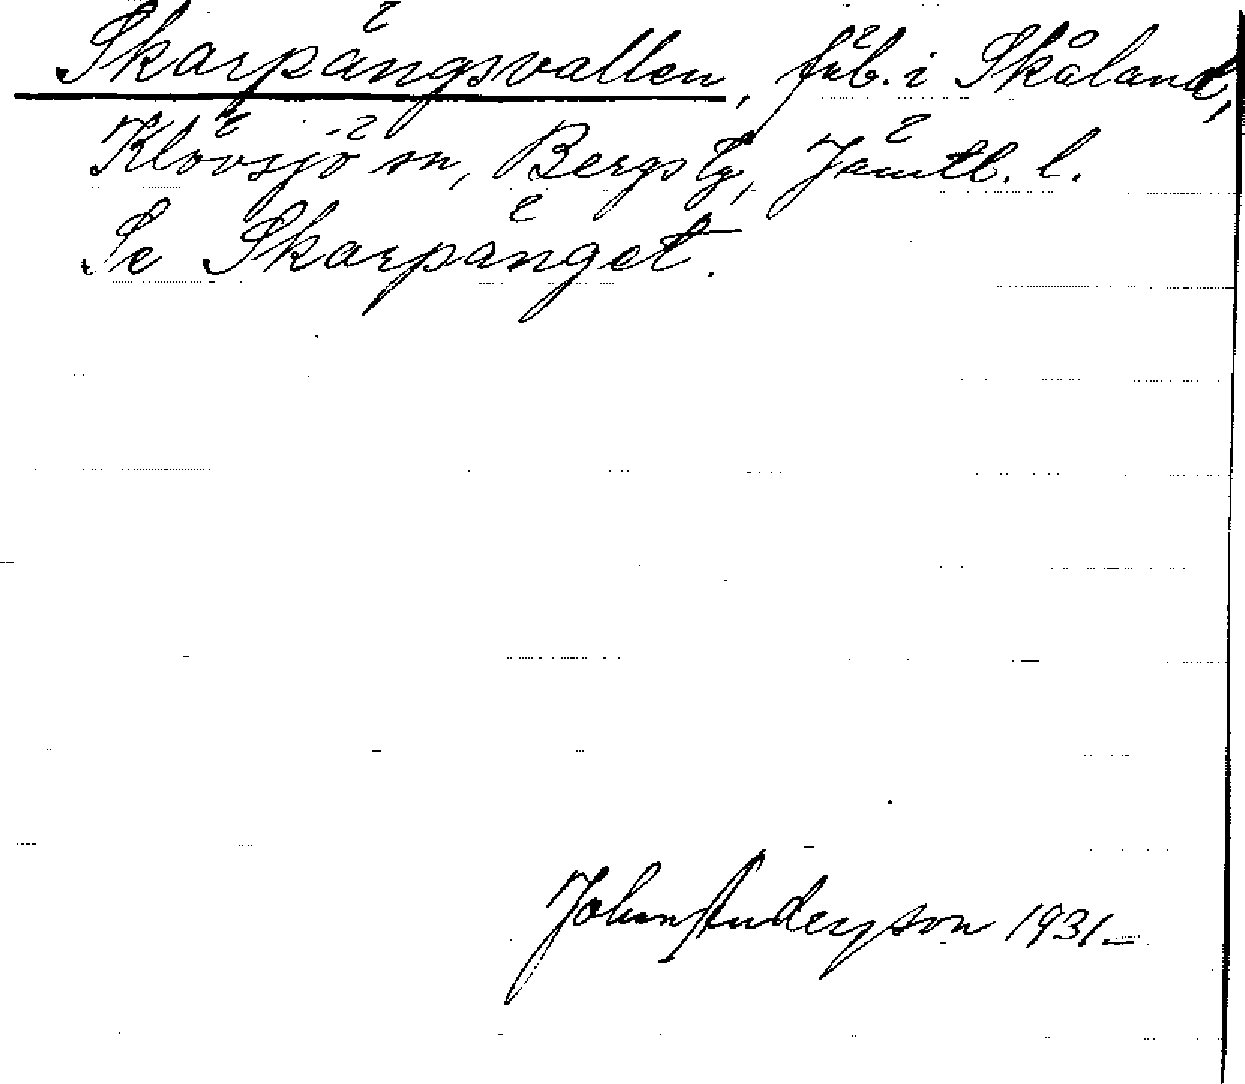 Skarpängsvallen, fäb. i Skåland,
Klövsjö sn, Bergs tg, Jämtl. l.
Se Skarpänget.
John Anderson 1931